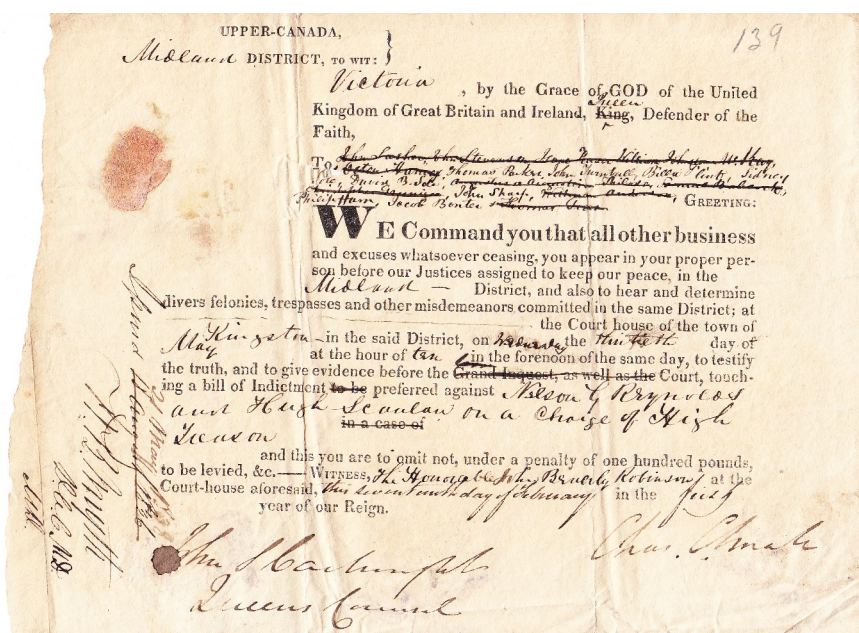 139
UPPER-CANADA,
Midland DISTRICT, TO WIT: }
Victoria , by the Grace of GOD of the United
Queen
Kingdom of Great Britain and Ireland, King, Defender of the
Faith,
To John Stevenson, William
Thomas Parker, John Turnbull, Billa Flint, Sidney
David B. John Sharp, GREETING:
Philip Ham, Jacob Bonter Thomas
WE Command you that all other business
and excuses whatsoever ceasing, you appear in your proper per-
son before our Justices assigned to keep our peace, in the
Midland — District, and also to hear and determine
divers felonies, trespasses and other misdemeanors committed in the same District; at
the Court house of the town of
Kingston in the said District, on Wednesday the thirtieth day of
May at the hour of ten in the forenoon of the same day, to testify
the truth, and to give evidence before the Grand Inquest, as well as the Court, touch-
ing a bill of Indictment to be preferred against Nelson G Reynolds
and Hugh Scanlan on a Charge of High
in a case of
Treason
and this you are to omit not, under a penalty of one hundred pounds,
to be levied, &c.—— WITNESS, The Honorable John Beverly Robinson at the
Court-house aforesaid, this seventeenth day of February in the first
year of our Reign.
John S Cartwright
Queens Counsel